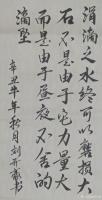 涓滴之水终可以磨损大
石不是由于它力量大
而是由于昼夜不舍的
滴坠
辛丑牛年秋月刘开藏书